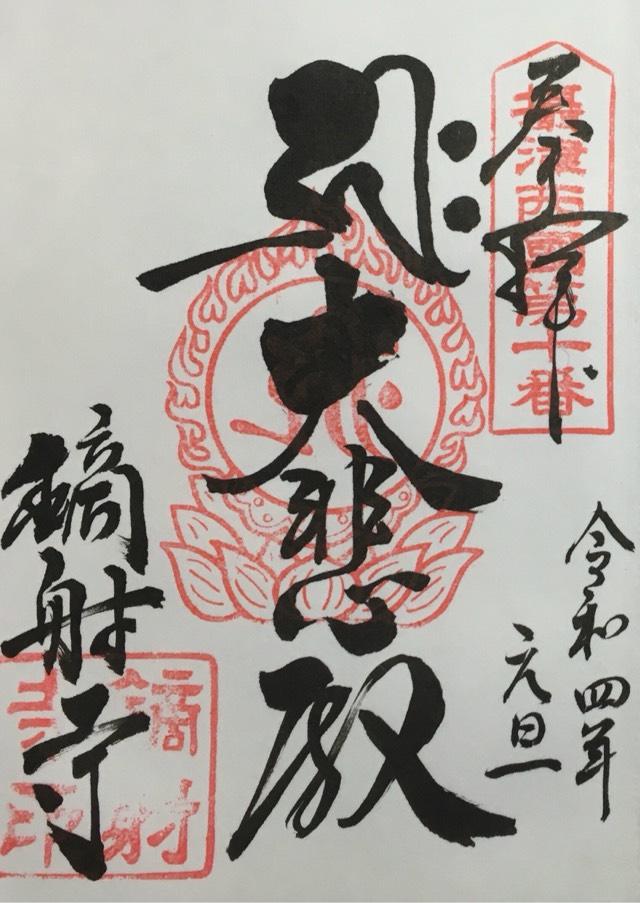 奉拝
摂津西國第十番
令和四年
元旦
大悲殿
鏑射寺
鏑射
寺印